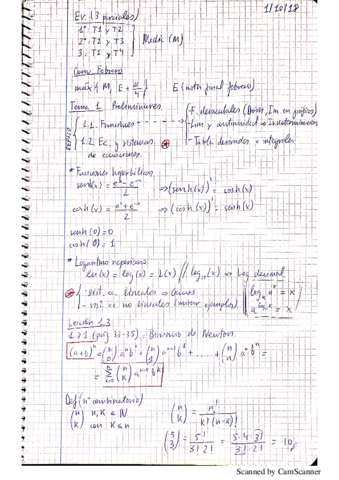 1/10/18
Ev. (3 parciales)
1º: T1 y T2
2º: T1 y T3
3º: T1 y T4
Media (M)
Conv. Febrero
máx { M, E + M/4 }
E (nota final febrero)
Tema 1. Preliminares
REPASO
1.1. Funciones
- F. elementales (Dom, Im en gráficas)
- Lím y continuidad → Indeterminaciones
- Tabla derivadas e integrales
1.2. Ec. y sistemas
de ecuaciones.
* Funciones hiperbólicas
senh(x) = e^x - e^-x / 2 ⇒ (senh(x))' = cosh(x)
cosh(x) = e^x + e^-x / 2 ⇒ (cosh(x))' = senh(x)
senh(0) = 0
cosh(0) = 1
* Logaritmo neperiano
Ln(x) = log(x) = L(x) // log₁₀(x) ⇒ Log decimal
- sist. ec. lineales → Gauss
- sist. ec. no lineales (mirar ejemplos)
log_a a^x = x
a^log_a x = x
Lección 1.3
1.3.1 (pág 33-35). Binomio de Newton.
(a+b)^n = (n 0) a^n b^0 + (n 1) a^n-1 b^1 + ..... + (n n) a^0 b^n =
= Σ (n k) a^n-k b^k
Def (nº combinatorio)
(n k) n, k ∈ ℕ
con k ≤ n
(n k) = n! / k! (n-k)!
(5 3) = 5! / 3! · 2! = 5·4·3! / 3! · 2! = 10
Scanned by CamScanner